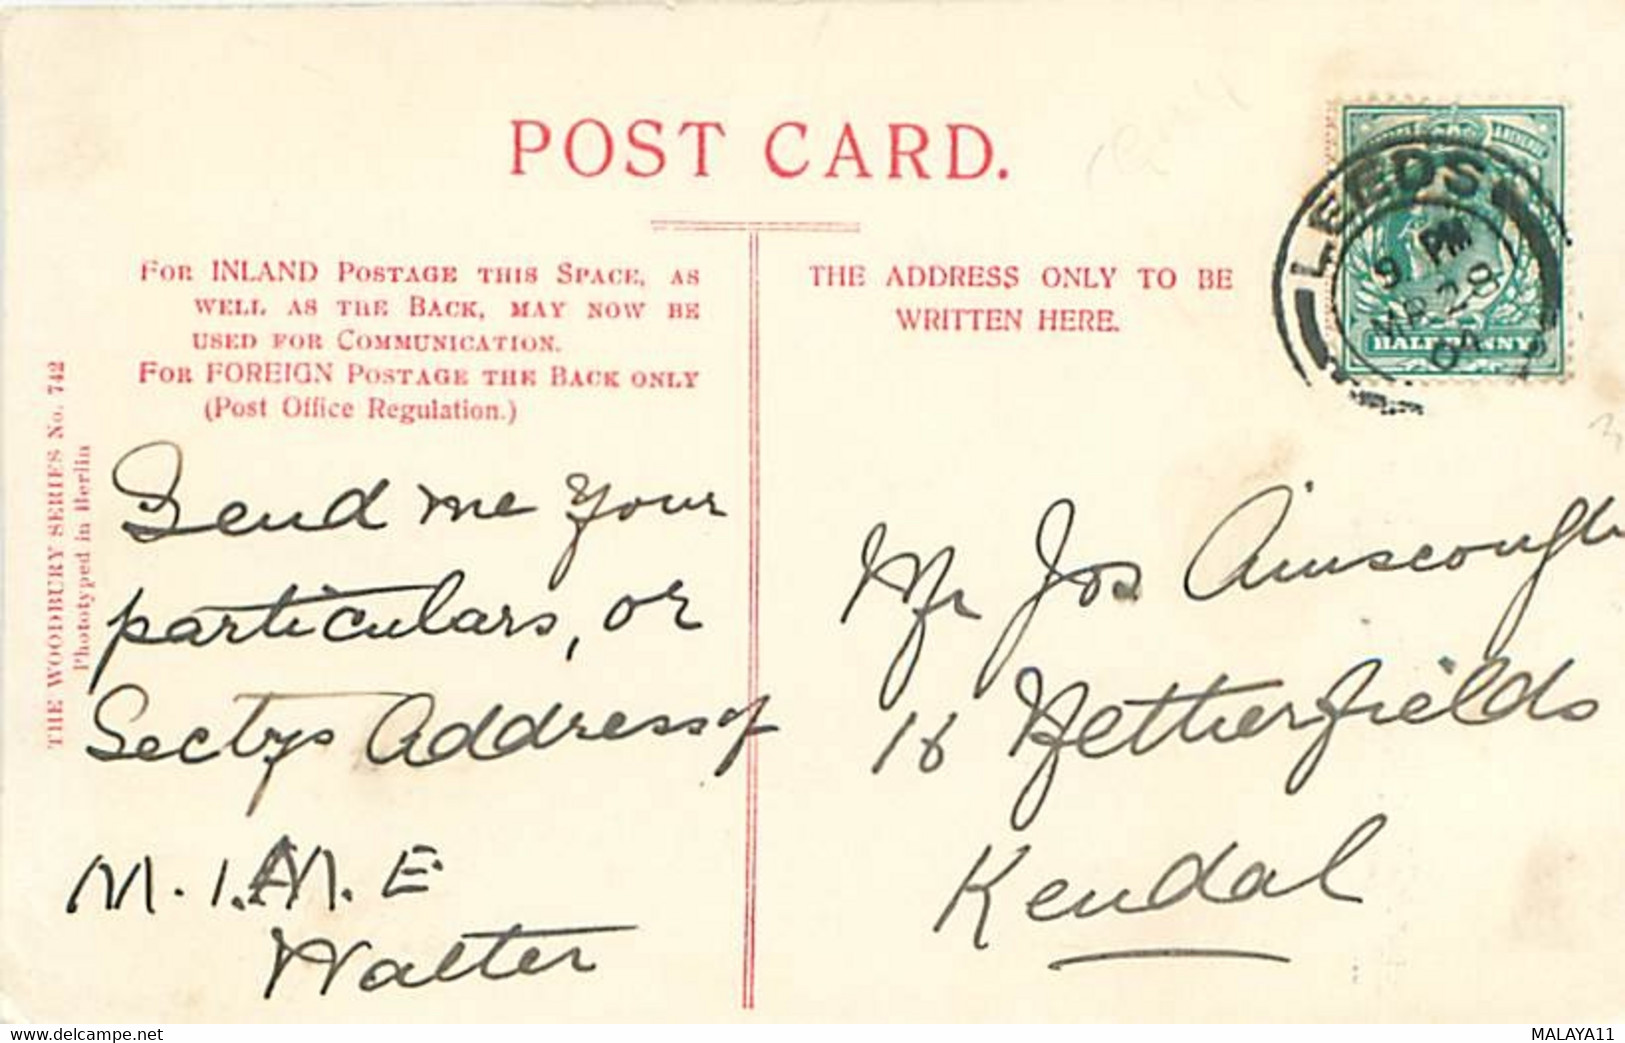 POST CARD.
FOR INLAND POSTAGE THIS SPACE, AS
WELL AS THE BACK, MAY NOW BE
USED FOR COMMUNICATION.
FOR FOREIGN POSTAGE THE BACK ONLY
(Post Office Regulation.)
THE ADDRESS ONLY TO BE
WRITTEN HERE.
THE WOODBURY SERIES No. 742
Phototyped in Berlin
LEEDS
9 PM
MR 28
04
HALFPENNY
Send me your
particulars, or
Sectys Address of
M.I.M.E
Walter
Mr Jos Ainscough
16 Netherfields
Kendal
delcampe.net
MALAYA11